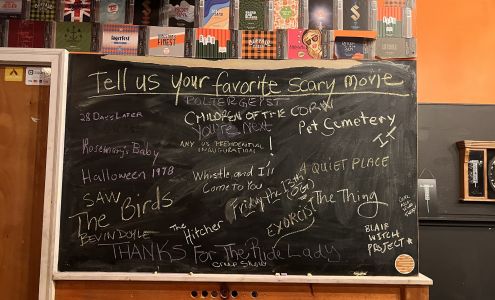 Tell us your favorite scary movie
POLTERGEYST
CHILDREN OF THE CORN
28 DAYS LATER
You're Next
Pet Semetery
IT
ANY US PRESIDENTIAL
INAUGURATION!
Rosemary's Baby
Halloween 1978
Whistle and I'll
Come to You
A QUIET PLACE
SAW
The Birds
Friday the 13th
The Thing
The
Hitcher
EXORCIST
BLAIR
WITCH
PROJECT
BEVIN DOYLE
THANKS For The Ride Lady
Creep Show